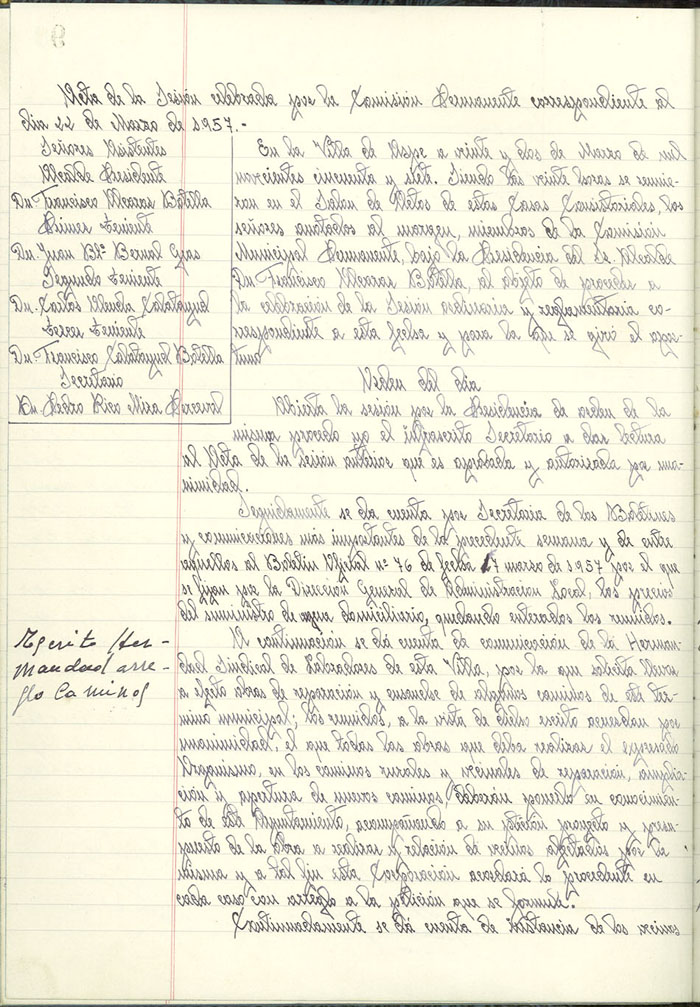 Acta de la Sesión celebrada por la Comisión Permanente correspondiente al
día 22 de Marzo de 1957.-
Señores Asistentes
Alcalde Presidente
Dn. Francisco Alcaraz Botella
Primer Teniente
Dn. Juan Bta. Bernal Gras
Segundo Teniente
Dn. Carlos Alenda Calatayud
Tercer Teniente
Dn. Francisco Calatayud Botella
Secretario
Dn Pedro Rico Mira Perceval
En la Villa de Aspe a veinte y dos de Marzo de mil
novecientos cincuenta y siete. Siendo las veinte horas se reunie-
ron en el Salon de Actos de estas Casas Consistoriales, los
señores anotados al margen, miembros de la Comisión
Municipal Permanente, bajo la Presidencia del Sr. Alcalde
Dn. Francisco Alcaraz Botella, al objeto de proceder a
la celebración de la Sesión ordinaria y reglamentaria co-
rrespondiente a esta fecha y para la que se giró el opor-
tuno
Orden del día
Abierta la sesión por la Presidencia de orden de la
misma procedo yo el infrascrito Secretario a dar lectura
al Acta de la sesión anterior que es aprobada y autorizada por una-
nimidad.
Seguidamente se da cuenta por Secretaria de los Boletines
y comunicaciones más importantes de la precedente semana y de entre
aquellos al Boletin Oficial nº 76 de fecha 17 marzo de 1957 por el que
se fijan por la Dirección General de Administración Local, los precios
del suministro de agua domiciliario, quedando enterados los reunidos.
Escrito Her-
mandad arre-
glo Caminos
A continuación se dá cuenta de comunicación de la Herman-
dad Sindical de Labradores de esta Villa, por la que solicita llevar
a efecto obras de reparación y ensanche de algunos caminos de este tér-
mino municipal; los reunidos, a la vista de dicho escrito acuerdan por
unanimidad, el que todas las obras que deba realizar el expresado
Organismo, en los caminos rurales y vecinales de reparación, amplia-
ción y apertura de nuevos caminos, deberán ponerlo en conocimien-
to de este Ayuntamiento, acompañando a su petición proyecto y presu-
puesto de la obra a realizar y relación de vecinos afectados por la
misma y a tal fin esta Corporación acordará lo procedente en
cada caso con arreglo a la petición que se formule.
Continuadamente se dá cuenta de instancia de los vecinos